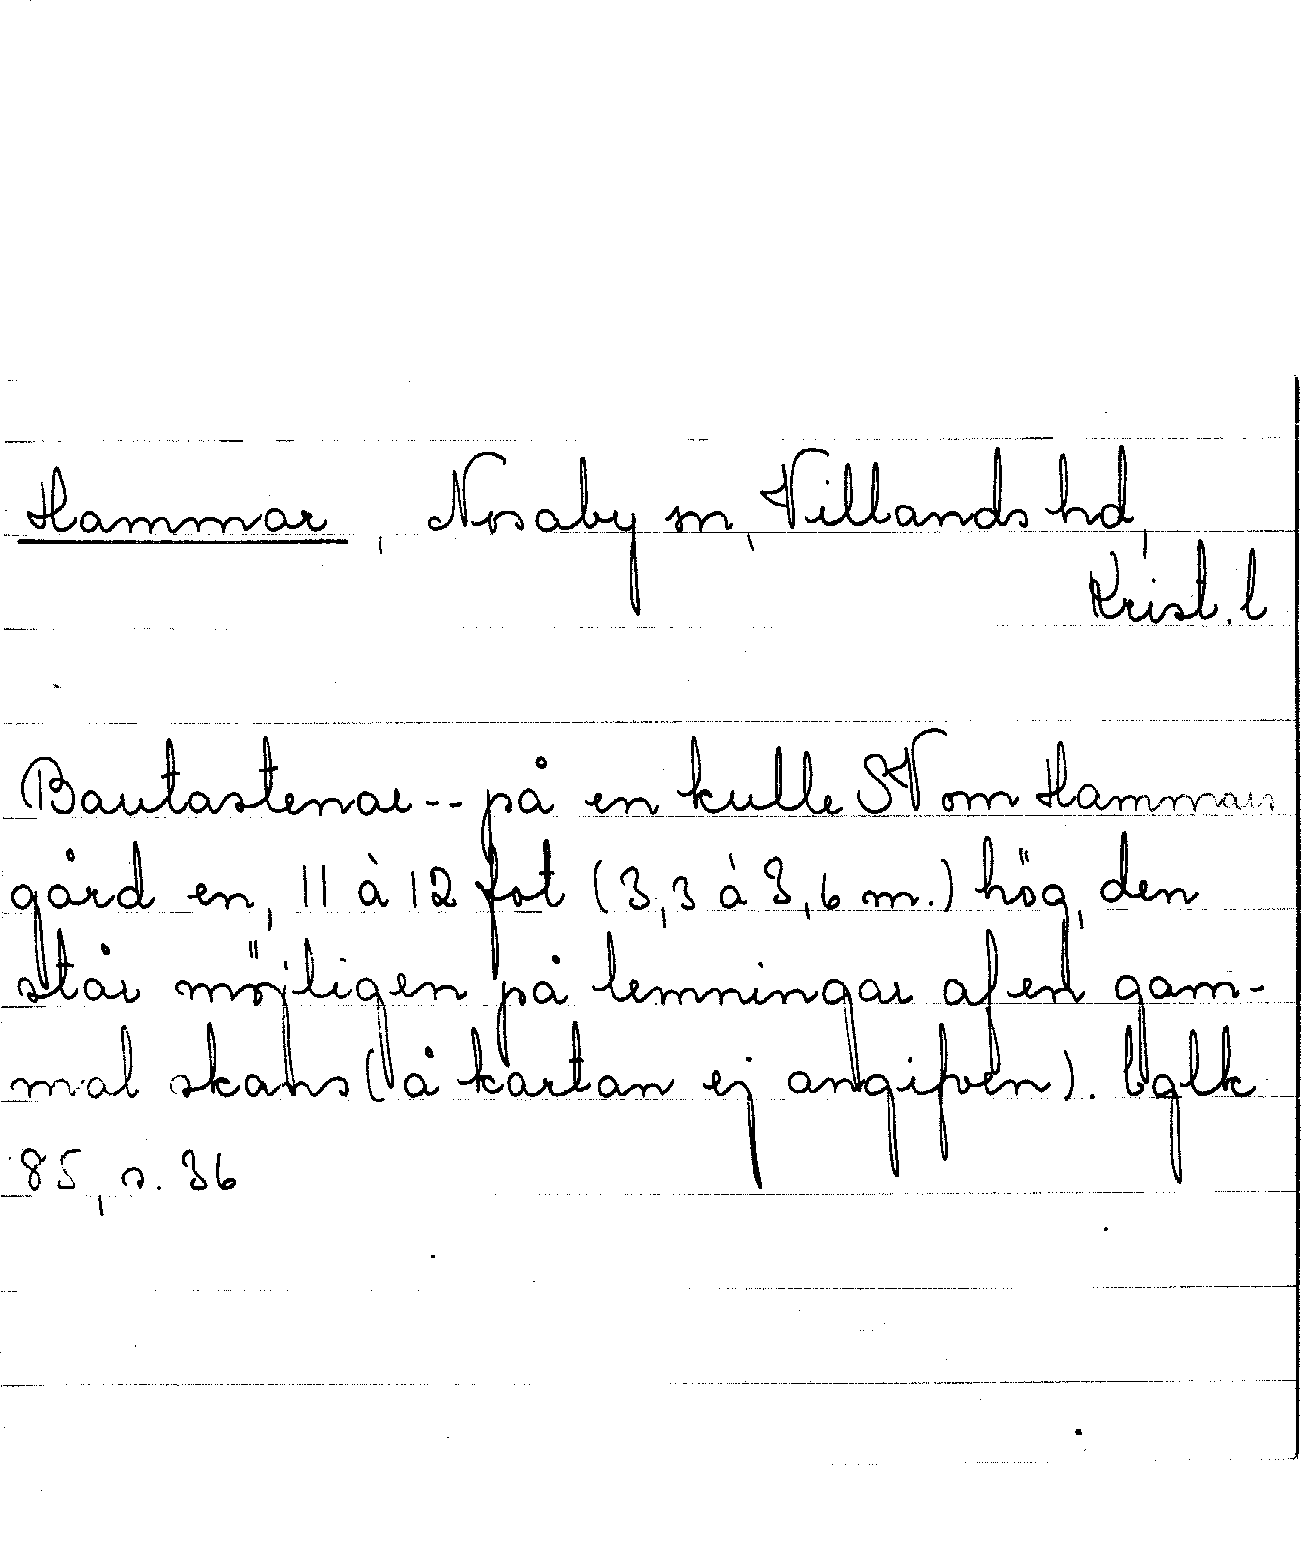 Hammar, Nosaby sn, Villands hd,
Krist. l
Bautastenar -- på en kulle SV om Hammar
gård en, 11 à 12 fot (3,3 à 3,6 m.) hög, den
står möjligen på lemningar af en gam-
mal skans (å kartan ej angifven). bglk
85, s. 36